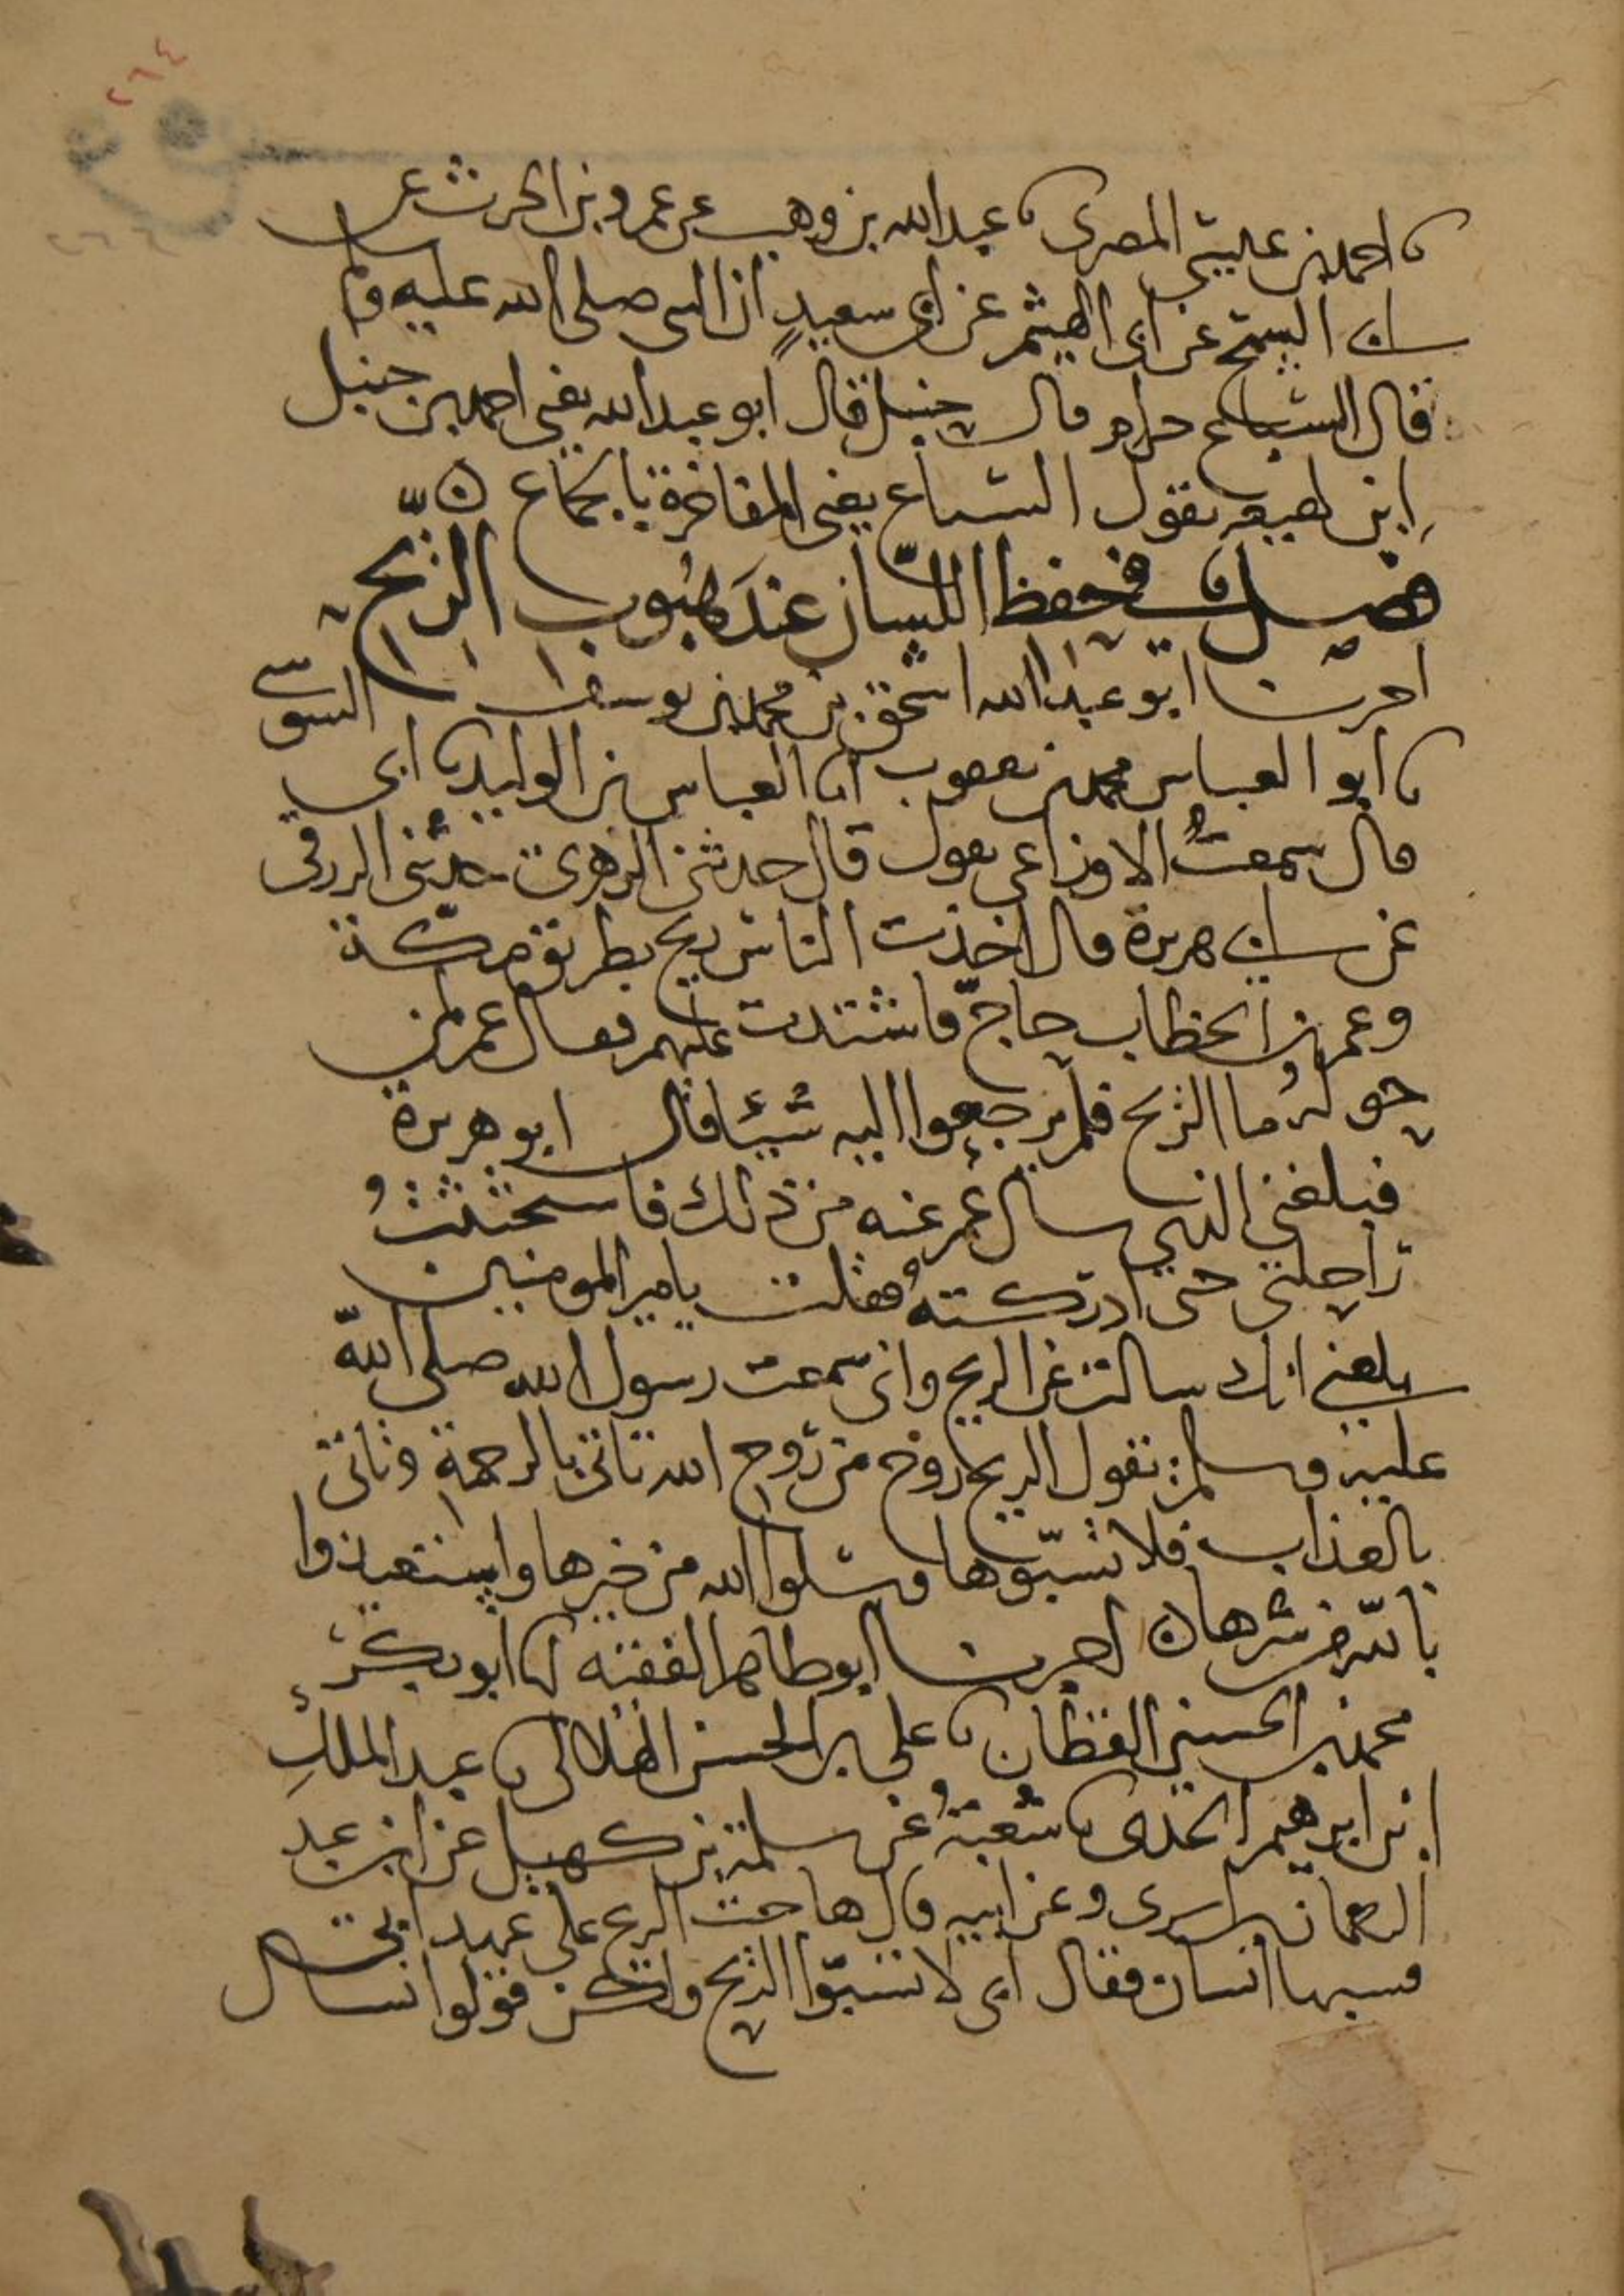 ٢٦٤
نا احمد بن عيسى المصرى نا عبد الله بن وهب عن عمرو بن الحرث عن
ابى السمح عن ابى الهيثم عن ابى سعيد ان النبى صلى الله عليه وسلم
قال الشياع حرام قال حنبل قال ابو عبد الله يعنى احمد بن حنبل
ابن لهيعه يقول الشياع يعنى المفاخرة بالجماع ٥
فصل فى حفظ اللسان عند هبوب الريح
اخبرنا ابو عبد الله اسحق بن محمد بن يوسف السوسى
نا ابو العباس محمد بن يعقوب انا العباس بن الوليد نا ابى
قال سمعت الاوزاعى يقول قال حدثنى الزهرى حدثنى الزرقى
عن ابى هريرة قال اخذت الناس ريح بطريق مكة
وعمر بن الخطاب حاجّ فاشتدت عليهم فقال عمر لمن
حوله ما الريح فلم يرجعوا اليه شيئا فقال ابو هريرة
فبلغنى الذى سال عمر عنه من ذلك فاستحثثتُ
راحلتى حتى ادركته فقلت يامير المومنين
بلغنى انك سالت عن الريح وانى سمعت رسول الله صلى الله
عليه وسلم يقول الريح روح من روح الله تاتى بالرحمة وتاتى
بالعذاب فلا تسبّوها وسلوا الله من خيرها واستعيذوا
بالله من شرها ٥ اخبرنا ابو طاهر الفقيه انا ابو بكر
محمد بن الحسين القطان نا على بن الحسن الهلالى نا عبد الملك
ابن ابرهيم الجدى نا شعبة عن سلمة بن كهيل عن ابن عبد
الرحمان بن ابزى وعن ابيه قال هاجت الريح على عهد ابى
فسبها انسان فقال ابى لا تسبّوا الريح ولكن قولوا نسال